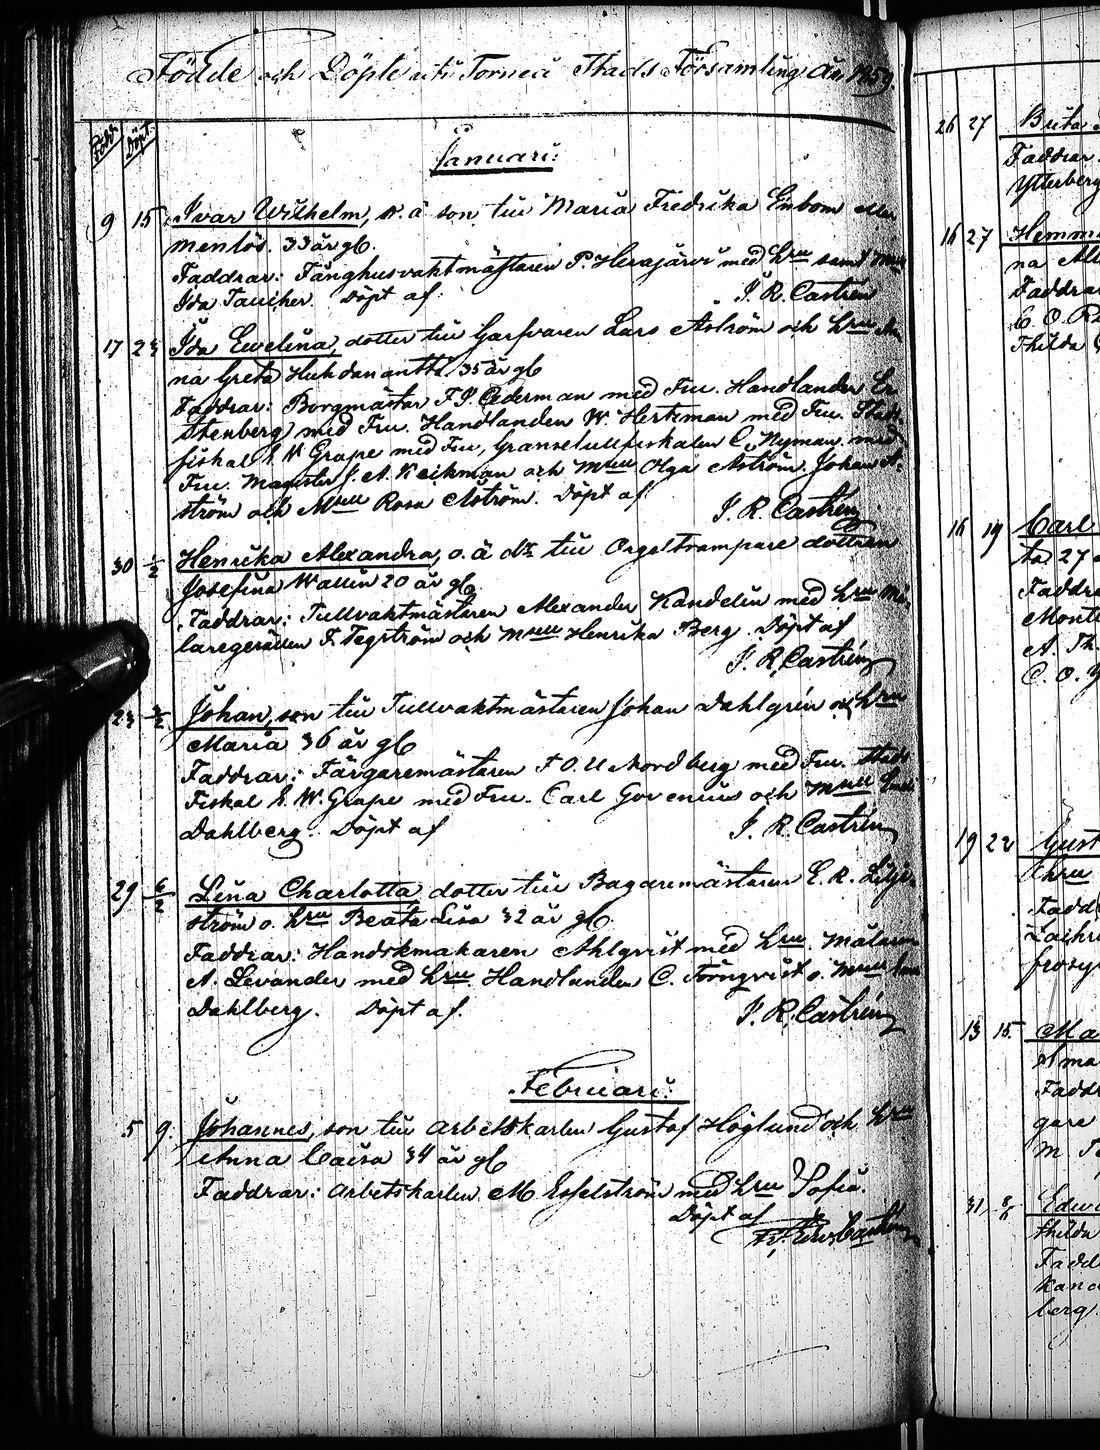 Födde och Döpte uti Torneå Stads Församling År 1859.
Född. Döpt.
Januari:
9 15 Ivar Wilhelm, o. ä son till Maria Fredrika Enbom
33 år gl.
Faddrar: Fånghusvaktmästaren P. Herajärvi med hru samt Mlle
Ida Taucher. Döpt af: J. R. Castrén
17 23 Ida Ewelina, dotter till Garfvaren Lars Aström och hru An
na Greta Huhdananttti 35 år gl
Faddrar: Borgmästar F. J. Cederman med Fru. Handlanden Er
Stenberg med Fru. Handlanden W. Hertzman med Fru. Stads
fiskal E. W. Grape med Fru, C. Nyman med
Fru. Magister J. A. Weikman och Mlle Olga Aström. Johan A-
ström och Mlle Rosa Aström. Döpt af
J. R. Castrén
30 1/2 Henrika Alexandra, o. ä dr till Orgeltrampare dottren
Josefina Wallin 20 år gl.
Faddrar: Tullvaktmästaren Alexander Kandelin med hru Må-
laregesällen F. Tegström och Mlle Henrika Berg. Döpt af
J. R. Castrén
23 2/2 Johan, son till Tullvaktmästaren Johan Dahlgrén och hru
Maria 36 år gl
Faddrar: Färgaremästaren F O. U Nordberg med Fru. Stads
Fiskal E. W. Grape med Fru. Carl Govenius och Mlle
Dahlberg. Döpt af J. R. Castrén
29 6/2 Lena Charlotta, dotter till Bagaremästaren E. R. Lilje-
ström o. hru Beata Lisa 32 år gl.
Faddrar: Handskmakaren Ahlqvist med hru. Målaren
A. Levander med hru. Handlanden C. Törnqvist o. Mlle
Dahlberg. Döpt af. J. R. Castrén
Februari:
5 9. Johannes, son till arbetskarlen Gustaf Höglund och hru
Anna Caisa 34 år gl
Faddrar: arbetskarlen M. Esselström med hru Sofia.
Döpt af
Castrén
26 27 Brita
Faddrar.
Ytterberg
16 27 Hemm
na
Faddrar
C. O.
Thilda
16 19 Carl
27
Faddra
Monte
A. Th.
C. O.
19 22 Gust
hru
Fadd
13 15. Ma
Fadd
gare
M.
31 8/11 Edw
thilda
Fadd
Kand
berg.